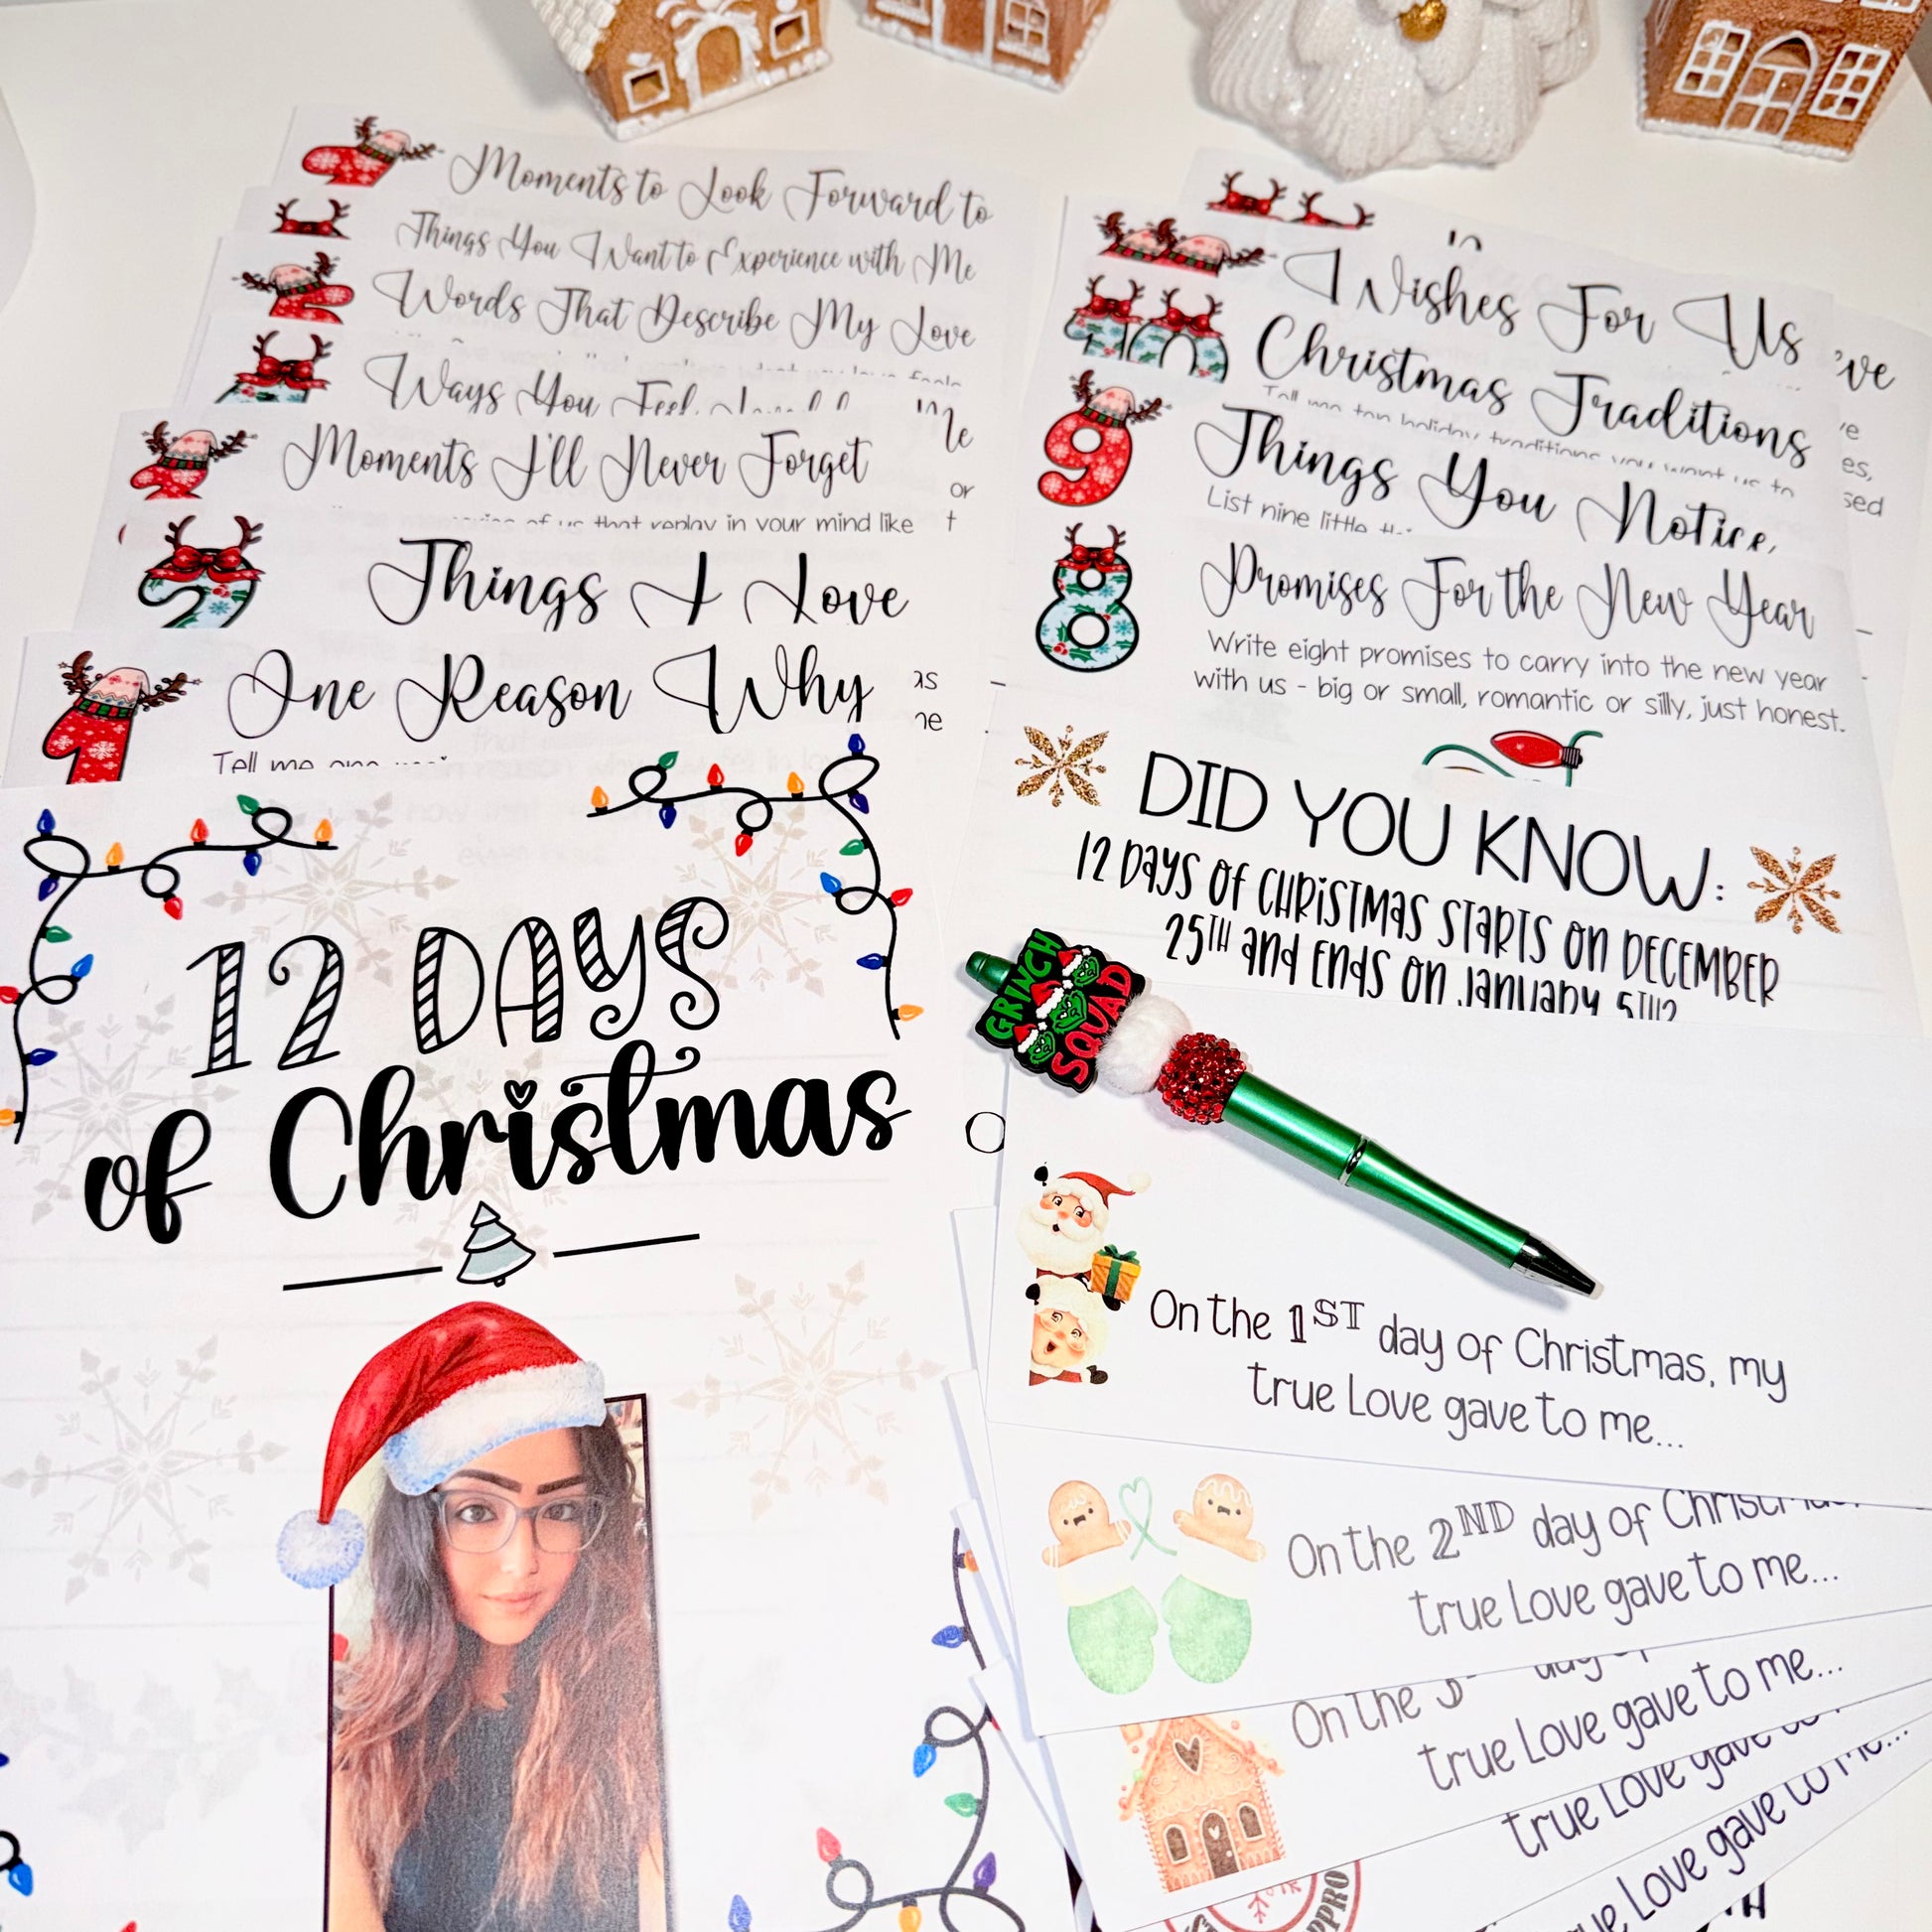 Moments to Look Forward to
Things You Want to Experience with Me
Words That Describe My Love
Ways You Feel
Moments I'll Never Forget
of us that replay in your mind like
2
Things I Love
1
One Reason Why
Tell me one
12 DAYS
of Christmas
Wishes For Us
10
Christmas Traditions
Tell me ten holiday traditions you want us to
9
Things You Notice,
List nine little
8
Promises For the New Year
Write eight promises to carry into the new year
with us - big or small, romantic or silly, just honest.
DID YOU KNOW:
12 DAYS OF CHRISTMAS STARTS ON DECEMBER
25TH and ENDS ON JANUARY 5TH?
GRINCH
SQUAD
On the 1ST day of Christmas, my
true Love gave to me...
On the 2ND day of Christmas,
true Love gave to me...
On the 3 day
true Love gave to me...
true Love gave to
true Love gave to me...